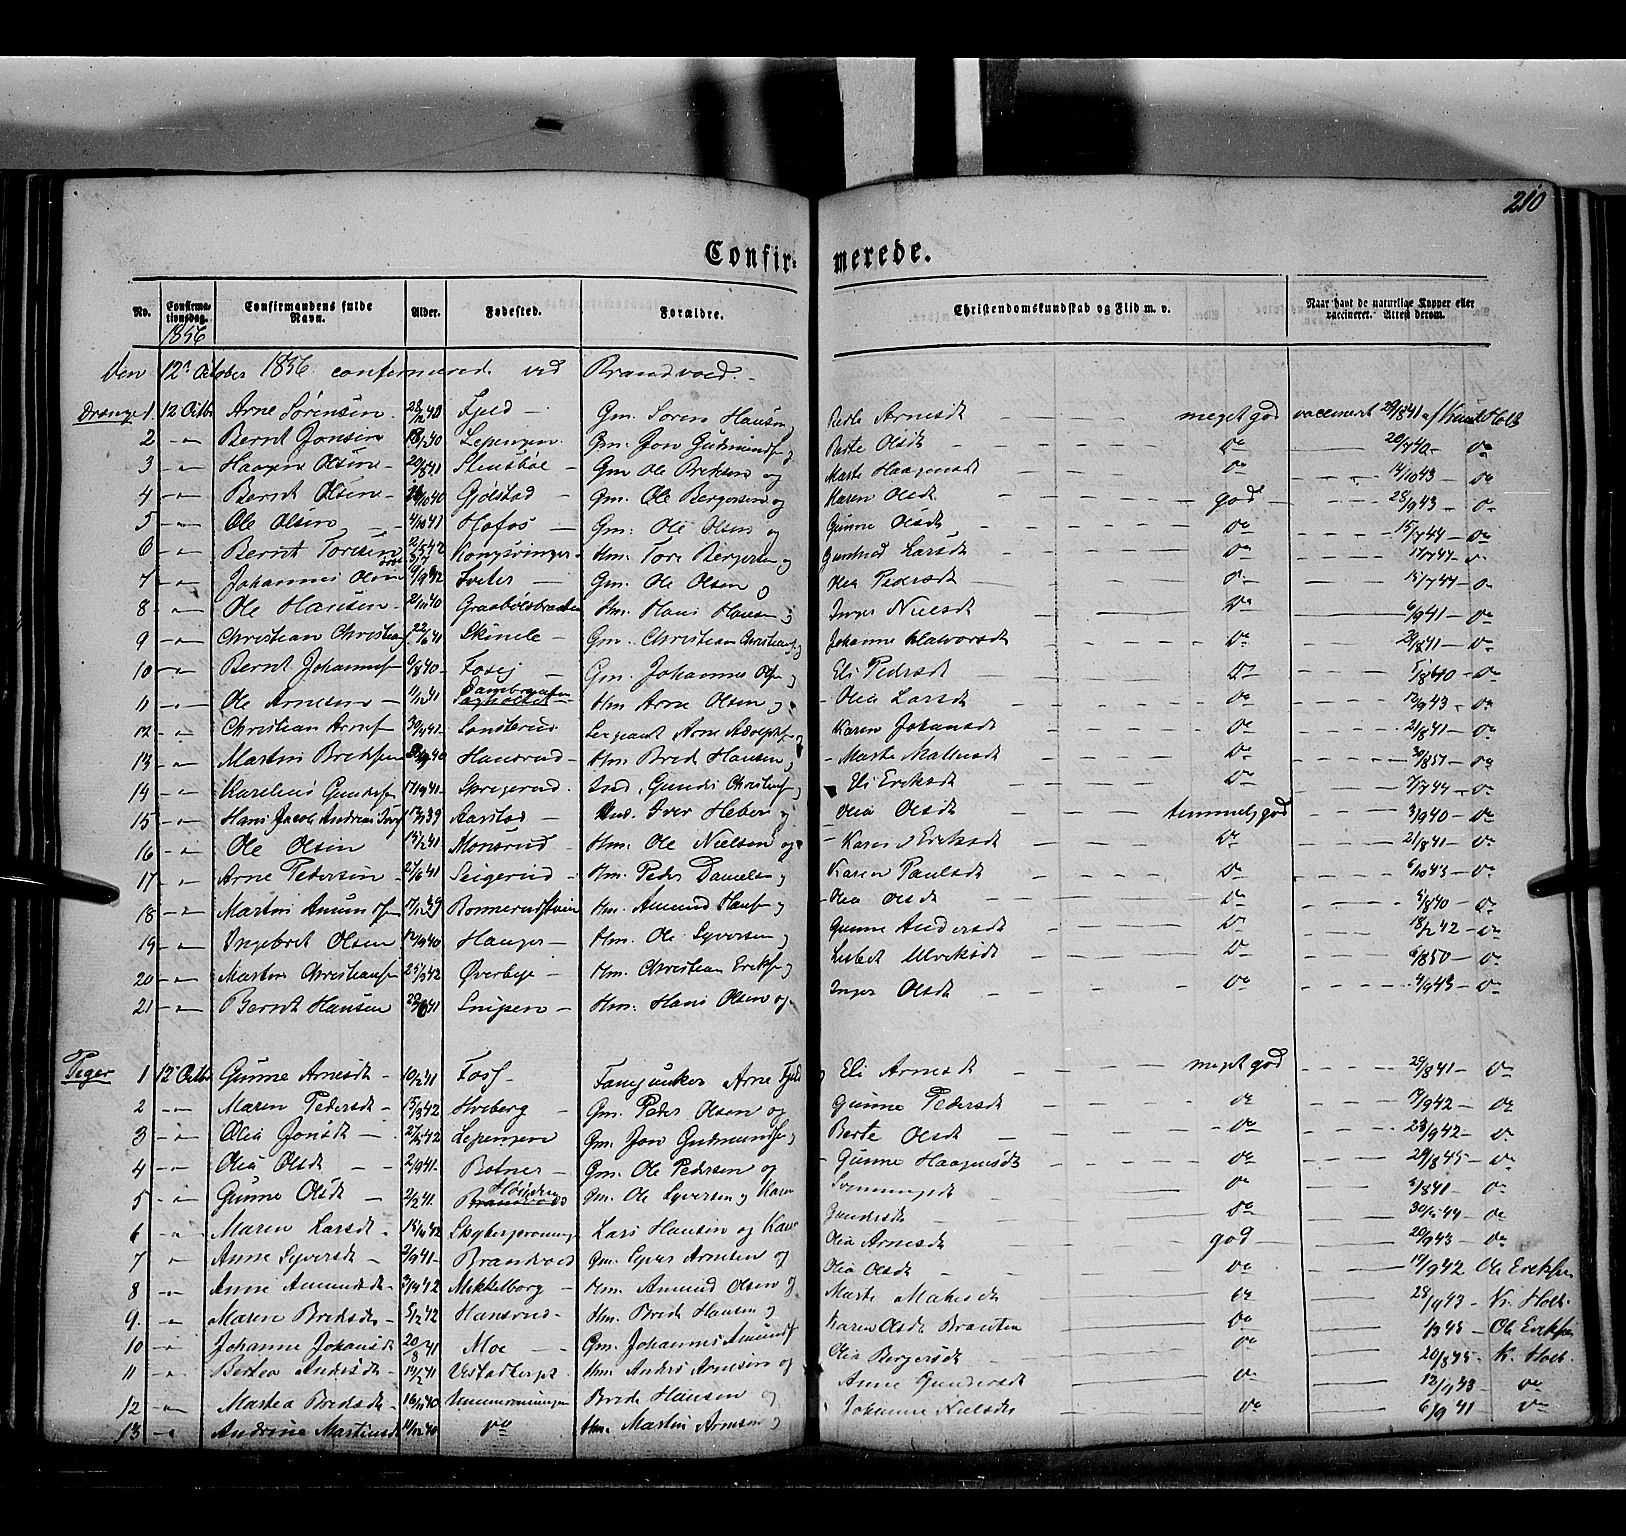 210
Confir- merede.
No. Confirmationsdag. Confirmandens fulde Navn. Alder. Fødested. Forældre. Christendomskundskab og Flid m. v. Naar havt de naturlige Kopper eller vaccineret. Attest derom.
1856
Den 12te October 1856 confirmerede ved Brandvoed.
Drenge 1. 12 Octbr Arne Sørensen Fjeld Gm. Søren Hansen Berte Arnesdt meget god vaccineret 29/8 41 af Knud Holt
2 Bernt Jonsen Lepengen Gm. Jon Gudmunds og Berte Olsdt do do
3 Haagen Olsen 20/8 41 Stensboe Gm Ole Berksen og Marte Haagensdt do 14/10 43 do
4 Bernt Olsen Gjølstad Gm. Ole Bergersen og Karen Olsdt god 28/9 43 do
5 Ole Olsen 4/10 41 Hofos Gm. Ole Olsen og Gunne Olsdt do 15/7 44 do
6 Bernt Toresen Kongsvinger Hm. Tore Bergersen og Gunhild Larsdt do 17/7 44 do
7 Johannes Olsen Tveter Gm. Ole Olsen og Olea Pedersdt do 15/7 44 do
8 Ole Hansen 21/11 40 Graabølsbraaten Hm. Hans Hansen og Inger Nielsdt do 6/9 41 do
9 Christian Christians Skinele Gm. Christian Christians og Johanne Halvorsdt do 29/8 41 do
10 Bernt Johannes 9/8 40 Fosej Gm. Johannes Ols og Eli Pedersdt do do
11 Ole Arnesen 11/12 41 Hm Arne Olsen og Olea Larsdt do 12/9 43 do
12 Christian Arnes Sonsterud Sergeant Arne Adolphs og Karen Johansdt do 21/8 41 do
13 Martin Bredesen Hansrud Hm Brede Hansen og Marte Mathisdt do 30/8 51 do
14 Karelius Gunders 17/9 41 Sprigerud Ind. Gunder Christians og Eli Eriksdt do 7/7 44 do
15 Hans Jacob Andreas Ivers Aarstad Ind. Iver Heber og Olea Olsdt temmelig god 3/9 40 do
16 Ole Olsen 15/2 41 Monsrud Hm. Ole Nielsen og Karen Eriksdt do 21/8 41 do
17 Arne Pedersen 27/6 41 Seigerud Hm. Peder Danielsen og Karen Paulsdt do 6/10 43 do
18 Martin Amunds 17/12 39 Hm. Amund Hans og Olea Olsdt do 5/8 40 do
19 Ingebret Olsen 12/9 40 Hanger Hm. Ole Syversen og Gunne Andersdt do 18/2 42 do
20 Martin Christians 25/3 42 Øverbye Hm. Christian Eriks og Lisbet Ulriksdt do 6/8 50 do
21 Bernt Hansen Snipen Hm. Hans Olsen og Inger Olsdt do 4/9 43 do
Piger 1 12te Octbr Gunne Arnesdt 10/2 41 Foss Fanejunker Arne Fjeld og Eli Arnesdt meget god 29/8 41 do
2 Maren Pedersdt 15/3 42 Hveberg Gm. Peder Olsen og Gunne Pedersdt do 19/9 42 do
3 Olea Jonsdt Lepengen Gm. Jon Gudmunds og Berte Olsdt do 23/9 42 do
4 Olea Olsdt 2/9 41 Botner Gm. Ole Pedersen og Gunne Haagensdt do 29/8 45 do
5 Gunne Olsdt 2/2 41 Gm. Ole Syversen og Karen Svenningsdt do 3/8 41 do
6 Maren Larsdt Lars Hansen og Kari Gundersdt do do
7 Anne Syversdt 2/9 41 Brandvoed Gm. Syver Arnesen og Olea Arnesdt god 29/9 43 do
8 Anne Amundsdt Mikkelborg Hm. Amund Olsen og Olea Olsdt do 19/9 42 Ole Eriksen
9 Maren Bredesdt 5/2 42 Hansrud Hm. Brede Hansen og Marte Mathisdt do 23/9 43 Kn. Holt
10 Johanne Johansdt 20/8 41 Moe Gm. Johannes Amunds Karen Olsdt Braaten do Ole Eriksen
11 Bertea Andersdt Vestadberget Hm. Anders Arnesen og Olea Bergersdt do 20/8 45 K. Holt
12 Martea Bredesdt Brede Hansen og Anne Gundersdt do 12/9 43 do
13 Andrine Martinsdt 11/12 40 do Hm. Martin Arnesen og Johanne Nielsdt do 6/9 41 do